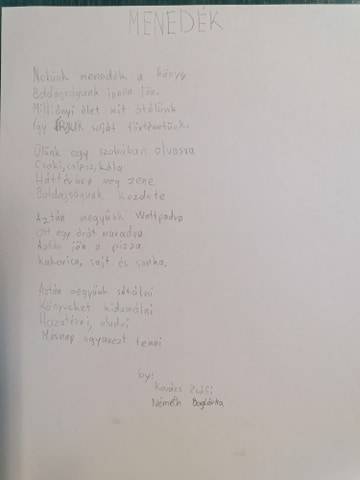 MENEDÉK
Nekünk menedék a könyv
Boldogságunk ipara jön.
Milliónyi élet mit átélünk
Így ÍRJUK saját történetünk.
Ülünk egy szobában olvasva
Csoki, chipsz, kóla
Háttérben meg zene
Boldogságunk kezdete
Aztán megyünk Wattpadra
Ott egy órát maradva
Aztán jön a pizza
kukorica, sajt és sonka.
Aztán megyünk sétálni
Könyveket kidumálni
Hazatérni, aludni
Másnap ugyanezt tenni
by:
Kovács Zsófi
Németh Boglárka